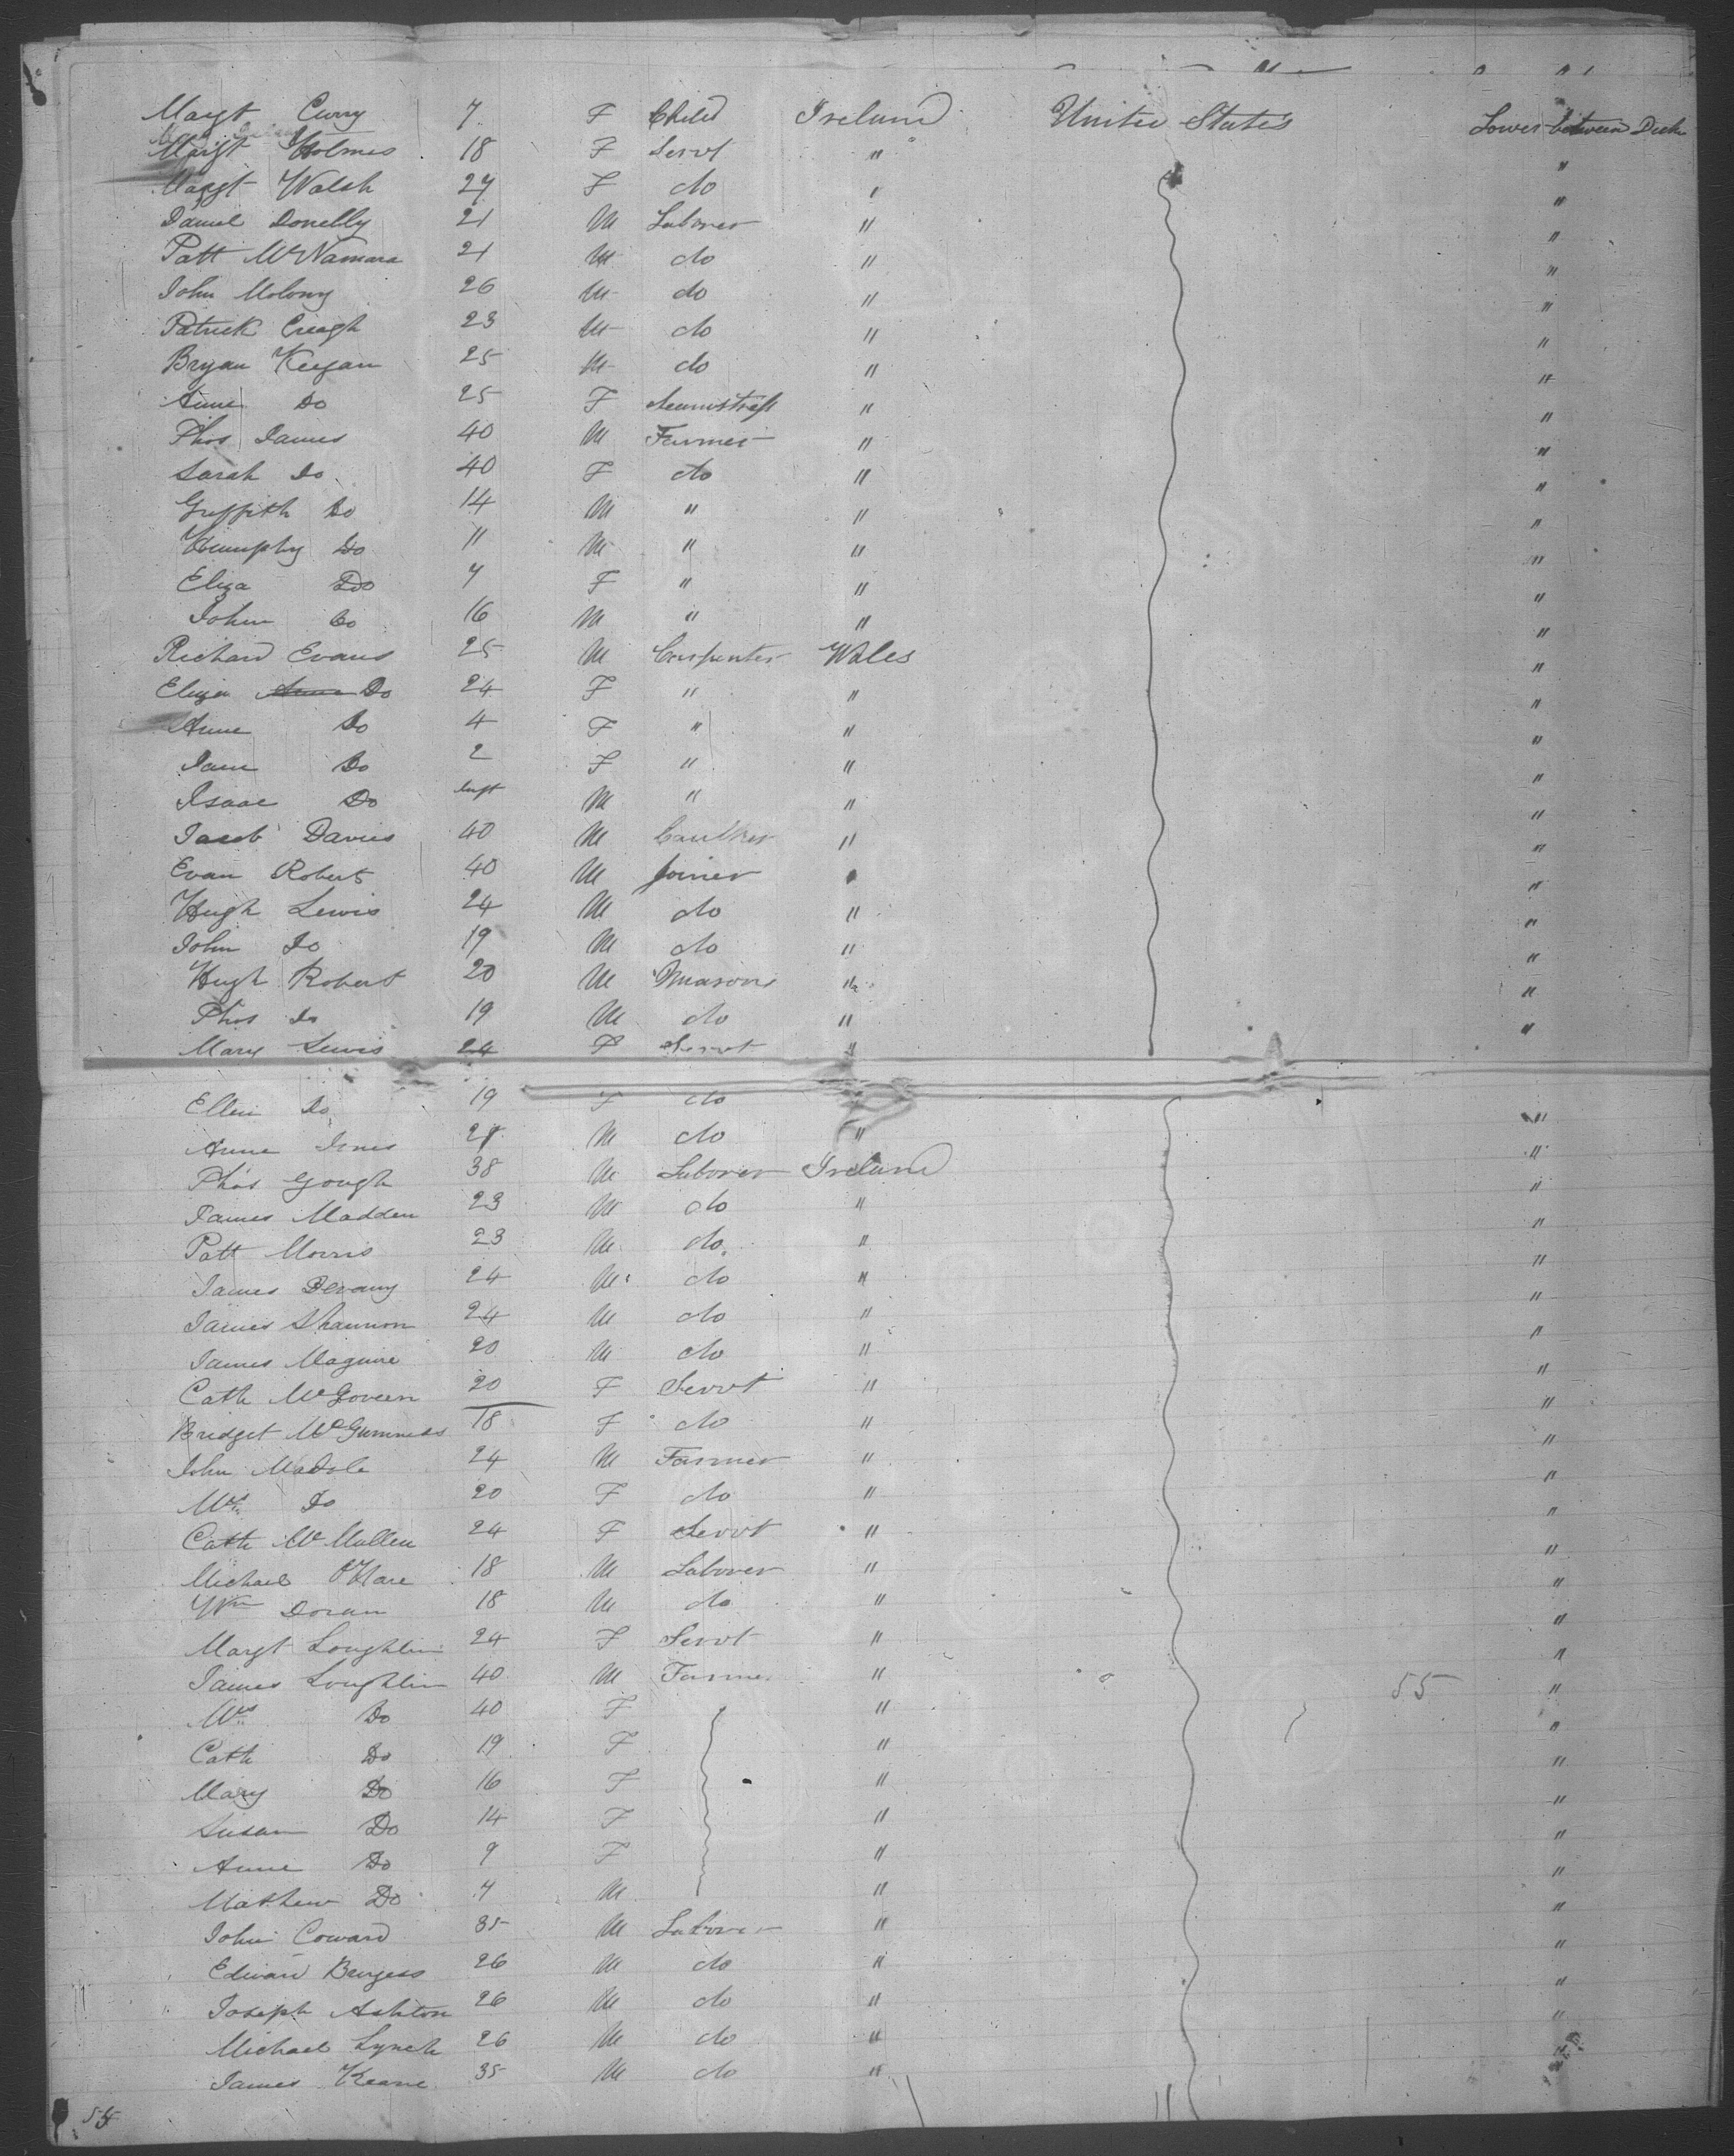 Margt Curry 7 F Child Ireland United States Lower between Deck
Margt Holmes 18 F Servt " "
Margt Walsh 27 F do " "
Daniel Donelly 21 M Laborer " "
Patt McNamara 21 M do " "
John Molony 26 M do " "
Patrick Creagh 23 M do " "
Bryan Keegan 25 M do " "
Anne Do 25 F Seamstress " "
Thos James 40 M Farmer " "
Sarah Do 40 F do " "
Griffith Do 14 M " " "
Humphy Do 11 M " " "
Eliza Do 7 F " " "
John Do 16 M " " "
Richard Evans 25 M Carpenter Wales "
Eliza Anne Do 24 F " " "
Anne Do 4 F " " "
Jane Do 2 F " " "
Isaac Do Inft M " " "
Jacob Davies 40 M Caulker " "
Evan Robert 40 M Joiner " "
Hugh Lewis 24 M do " "
John Do 19 M do " "
Hugh Robert 20 M Masons " "
Thos Do 19 M do " "
Mary Lewis 24 F Servt " "
Ellen Do 19 F do " "
Anne Jones 21 M do " "
Thos Gough 38 M Laborer Ireland "
James Madden 23 M do " "
Patt Morris 23 M do " "
James Devany 24 M do " "
James Shannon 24 M do " "
James Maguire 20 M do " "
Cath McGovern 20 F Servt " "
Bridget McGuinness 18 F do " "
John 24 M Farmer " "
Mrs Do 20 F do " "
Cath McMullen 24 F Servt " "
Michael O'Hare 18 M Laborer " "
Wm Doran 18 M do " "
Margt Loughlin 24 F Servt " "
James Loughlin 40 M Farmer " 55 "
Mrs Do 40 F " "
Cath Do 19 F " "
Mary Do 16 F " "
Susan Do 14 F " "
Anne Do 9 F " "
Mathew Do 4 M " "
John Coward 35 M Laborer " "
Edward Burgess 26 M do " "
Joseph Ashton 26 M do " "
Michael Lynch 26 M do " "
James Keane 35 M do " "
55